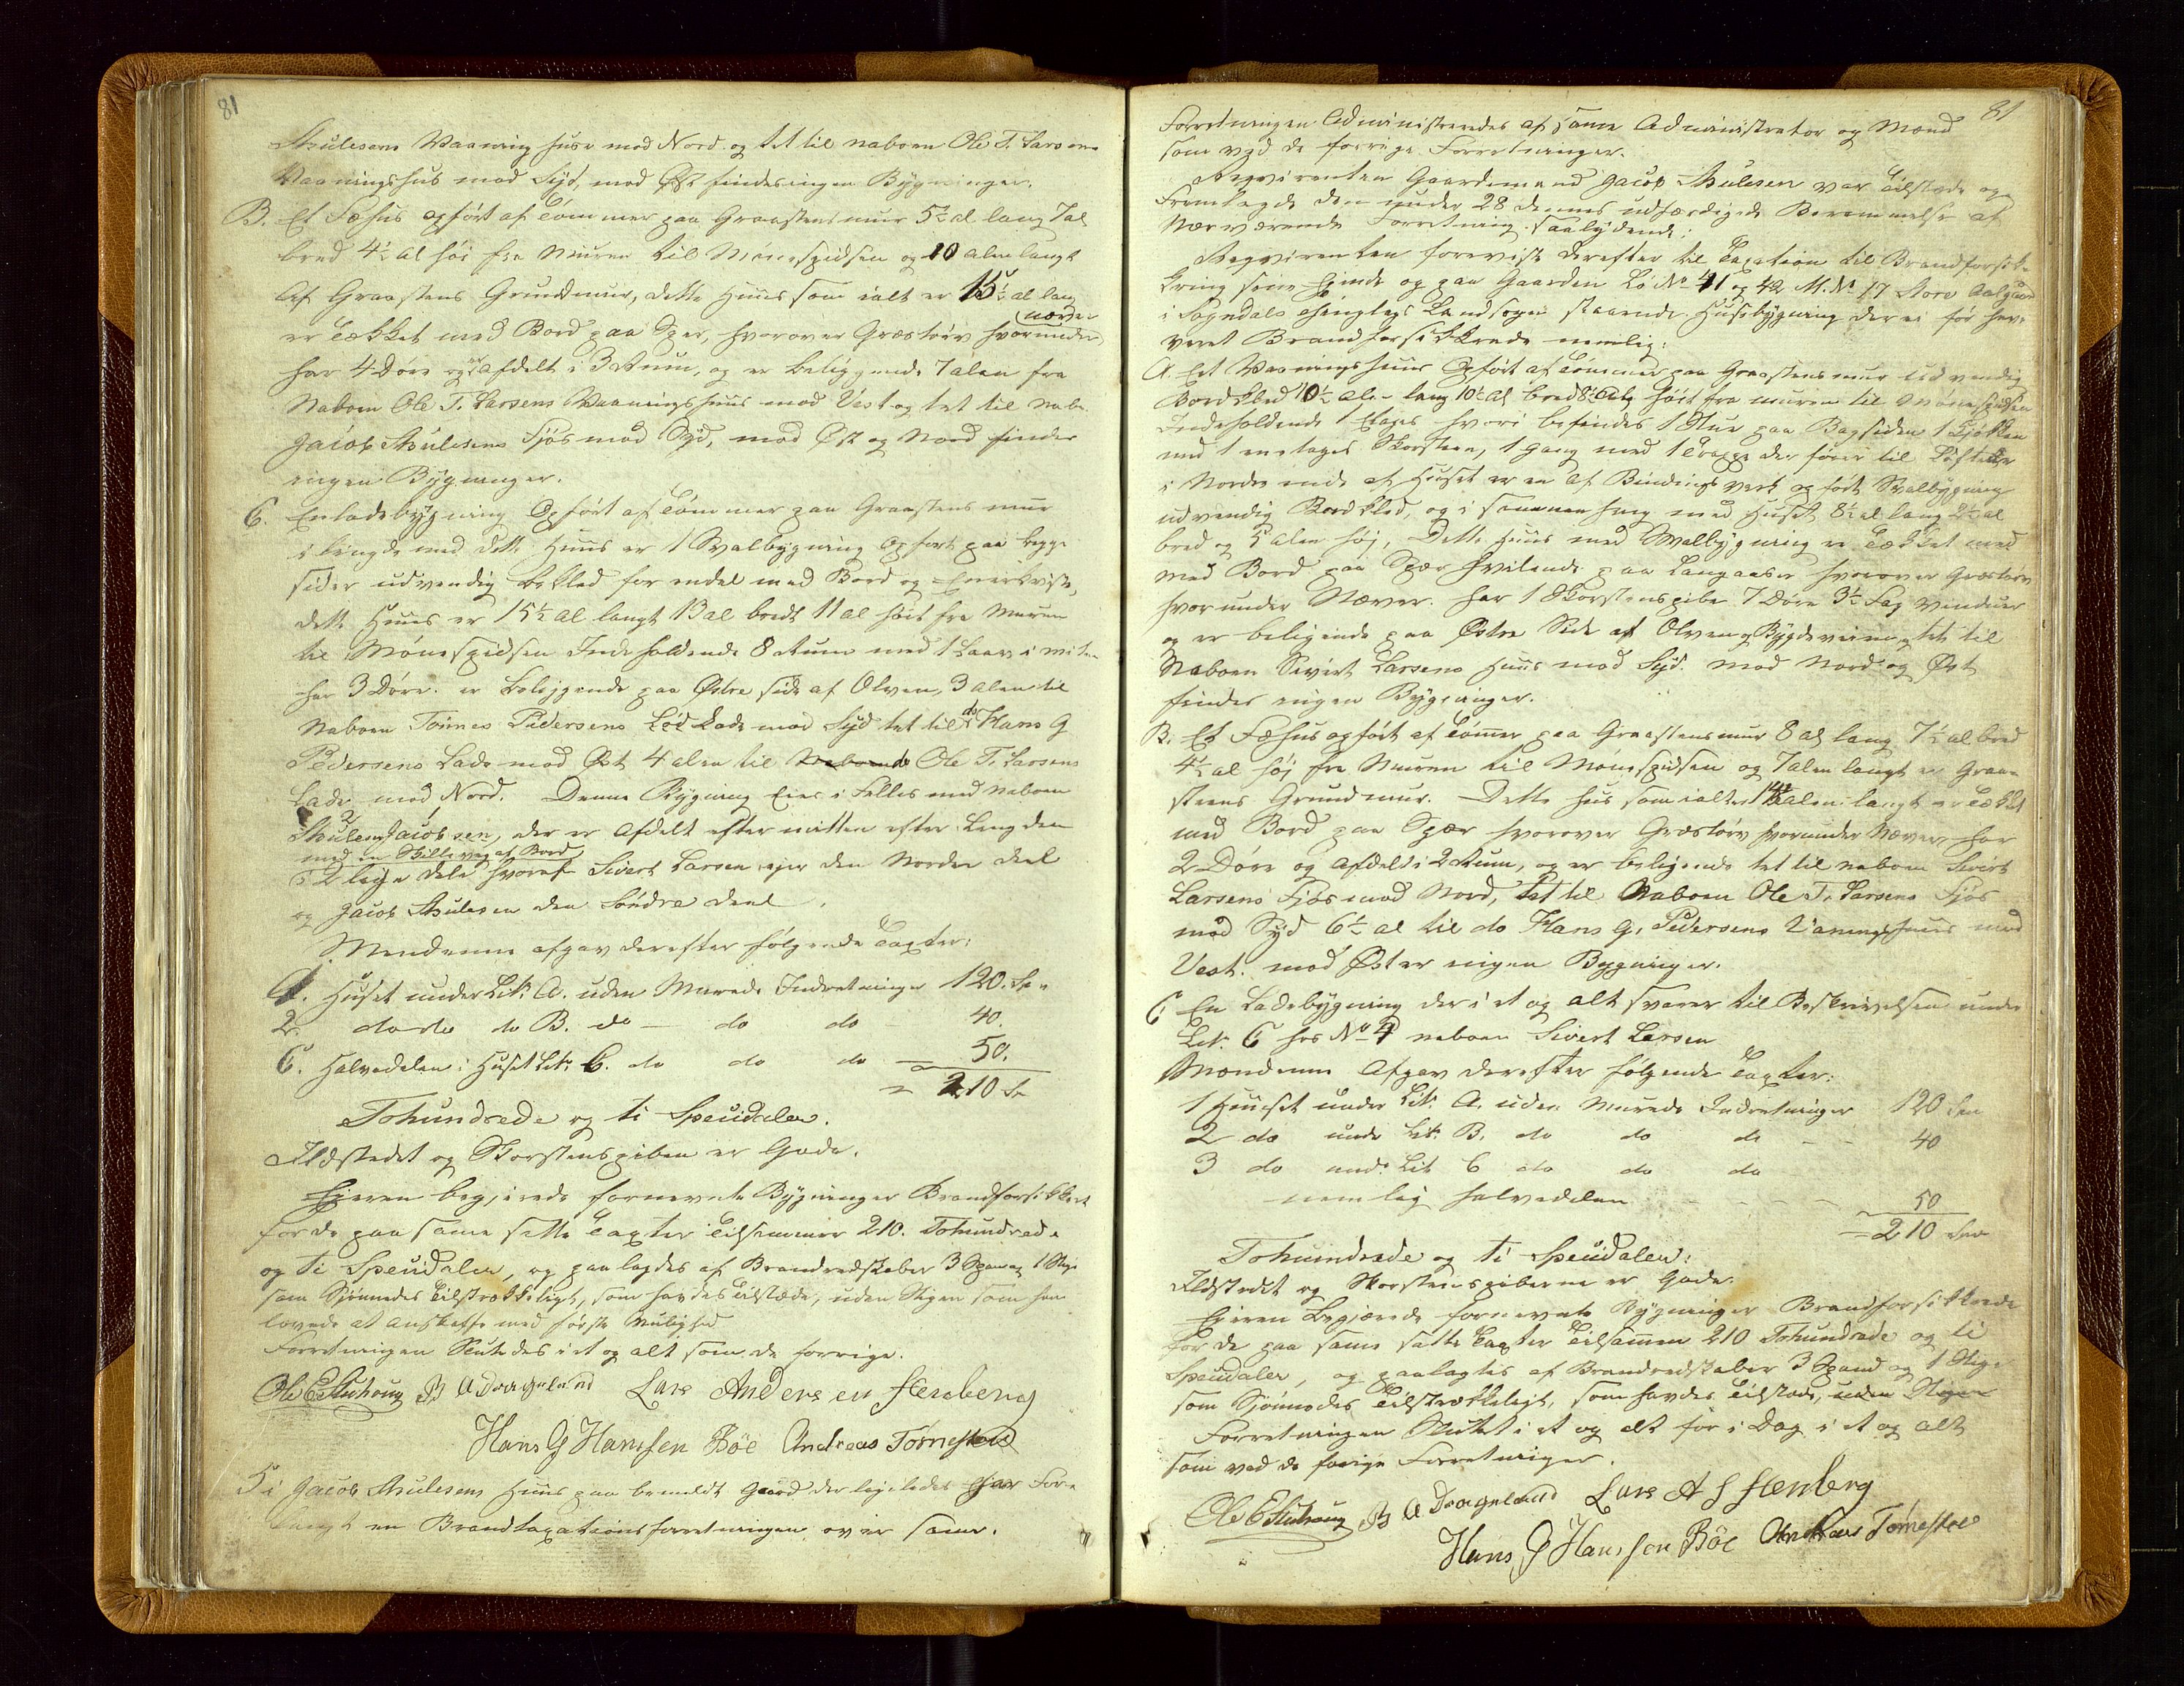 81
Skulesens Vaaning huse mod Nord og tet til naboen Ole T. Larsens
Vaaningshus mod Syd, mod Øst findes ingen Bygninger.
B. Et Fæhus opført af Tømmer paa Graastens mur 5½ al lang 7 al
bred 4½ al høi fra Muren til Mønespidsen og 10 alen langt
af Graastens Grundmur, dette Huus som ialt er 15½ al lang
er Tækket med Bord paa Sper, hvorover Græstørv hvorunder næver
har 4 Døre og er afdelt i 3 Rum, og er beliggende 7 alen fra
Naboen Ole T. Larsens Vaaningshuus mod Vest og tet til Nabo
Jacob Skulesens Fjøs mod Syd, mod Øst og Nord findes
ingen Bygninger.
C. En ladebygning Opført af Tømmer paa Graastens mur
i lengde med dette Huus er 1 Svalbygning Opført paa begge
sider udvendig beklæd for endel med Bord og Enerkviste,
dette Huus er 15½ al langt 13 al bredt 11 al høit fra Muren
til Mønespidsen Indeholdende 8 Rum med 1 Laav i miten
har 3 Døre. er Beliggende paa Østre side af Elven, 3 alen til
Naboen Tønnes Pedersens Lade mod Syd tet til do Hans G
Pedersens Lade mod Øst 4 alen til do Ole T. Larsens
Lade mod Nord. Denne Bygning Eies i Felles med naboen
Skulesen Jacobsen, der er Afdelt efter mitten efter Lengden
med en Skillevæg af Bord
i 2 lige dele hvoraf Sivert Larsen eger den Nordre deel
og Jacob Skulesen den Søndre deel.
Mendene afgav derefter følgende Taxter:
1. Huset under Litr. A. uden Murede Indretninger 120. Sp.
2 do do do B. do — do do 40.
C. Halvedelen i Huset Litr. C. do do do — 50.
= 210 Sp
Tohundrede og ti Speciedaler.
Ildstedet og Skorstenspiben er Gode.
Ejeren begjærede fornevnte Bygninger Brandforsikkret
for de paa same satte Taxter Tilsammen 210. Tohundrede
og Ti Speciedaler, og paalagdes af Brandredskaber 3 Spand og 1 Stige
som Sjønnedes Tilstrækkeligt, som havdes Tilstæde, uden Stigen som han
lovede at anskaffe med første Mulighed
Forretningen Sluttedes i et og alt som de forrige.
Ole E Stuhoug B A Drageland Lars Andersen Stenberg
Hans G Hanssen Böe Andreas Tørnestøe
5 i Jacob Skulesens Huus paa bemeldt Gaard der ligeledes for
langt en Brandtaxationsforretningen over same.
81
Forretningen Administreredes af same Administrator og Mænd
som ved de forrige Forretninger.
Reqvirenten Gaardmand Jacob Skulesen var Tilstede og
Fremlagde den under 28 dennes udfærdigede Berammelse af
Nærværende Forretning saalydende:
Reqvirenten foreviste derefter til Taxation til Brandforsik
kring sine Eiende og paa Gaarden Lø. No 41 og 42, M. No 17 Store Aalgaard
i Sogndals Thinglags Landsogn staaende Huusbygning der ei før har
veret Brandforsikkrede nemlig:
A. Et Vaaningshuus Opført af Tømmer paa Graastensmur udvendig
Bordklæd 10½ alen lang 10½ al bred 8½ al høit fra muren til Mønespidsen
Indeholdende 1 Etages hvori befindes 1 Stue paa Bagsiden 1 Kjøkken
med 1 enetages Skorsten, 1 Gang med 1 Trappe der fører til Loftet
i Nordre ende af Huset er en af Bindingsverk opført Svalbygning
udvendig Bordklæd, og i sammenheng med Huset 8½ al lang 2½ al
bred og 5 alen høi, Dette Huus med Svalbygning er Tækket med
med Bord paa Spær hvilende paa Langaaser hvorover Græstørv
hvorunder Næver. har 1 Skorstenspibe 7 Døre 3½ Fag vinduer
og er beligende paa Østre Side af Elven og Bygdeveien, tet til
Naboen Sivert Larsens Huus mod Syd. mod Nord og Øst
findes ingen Bygninger.
B. Et Fæhus opført af Tømer paa Graastensmur 8 al lang 7½ al bred
4½ al høj fra Muren til Mønespidsen og 7 alen langt er Graa-
steens Grundmur. Dette hus som ialt er alen langt er Tækket
med Bord paa Spær hvorover Græstørv hvorunder Næver, har
2 Døre og Afdelt i 2 Rum, og er beligende tet til naboen Sivert
Larsens Fjøs mod Nord, tet til Naboen Ole T. Larsens Fjøs
mod Syd 6½ al til do Hans G. Pedersens Vaaningshuus mod
Vest. mod Øst er ingen Bygninger.
C. En Ladebygning der i et og alt svarer til Beskrivelsen under
Litr. C hos No 4 naboen Sivert Larsen
Mændene Afgav derefter følgende Taxter:
1 Huuset under Litr. A. uden Murede Indretninger 120 Spd
2 do under Litr. B. do do do — — 40
3 do und. Litr C do do do
nemlig halvedelen — — — — 50
= 210 Spd
Tohundrede og ti Speciedaler.
Ildstedet og Skorstenspiberne er Gode.
Ejeren Begjærede fornevnte Bygninger Brandforsikkrede
for de paa same satte Taxter Tilsamen 210 Tohundrede og ti
Speciedaler, og paalagtes af Brandredskaber 3 Spand og 1 Stige
som Sjønnedes Tilstrækkeligt, som havdes Tilstede, uden Stigen
Forretningen Slutet i et og alt for i Dag i et og alt
som ved de forige Forretninger.
Ole E Stuhoug B A Drageland Lars A S Stenberg
Hans G Hanssen Böe Andreas Tørnestøe